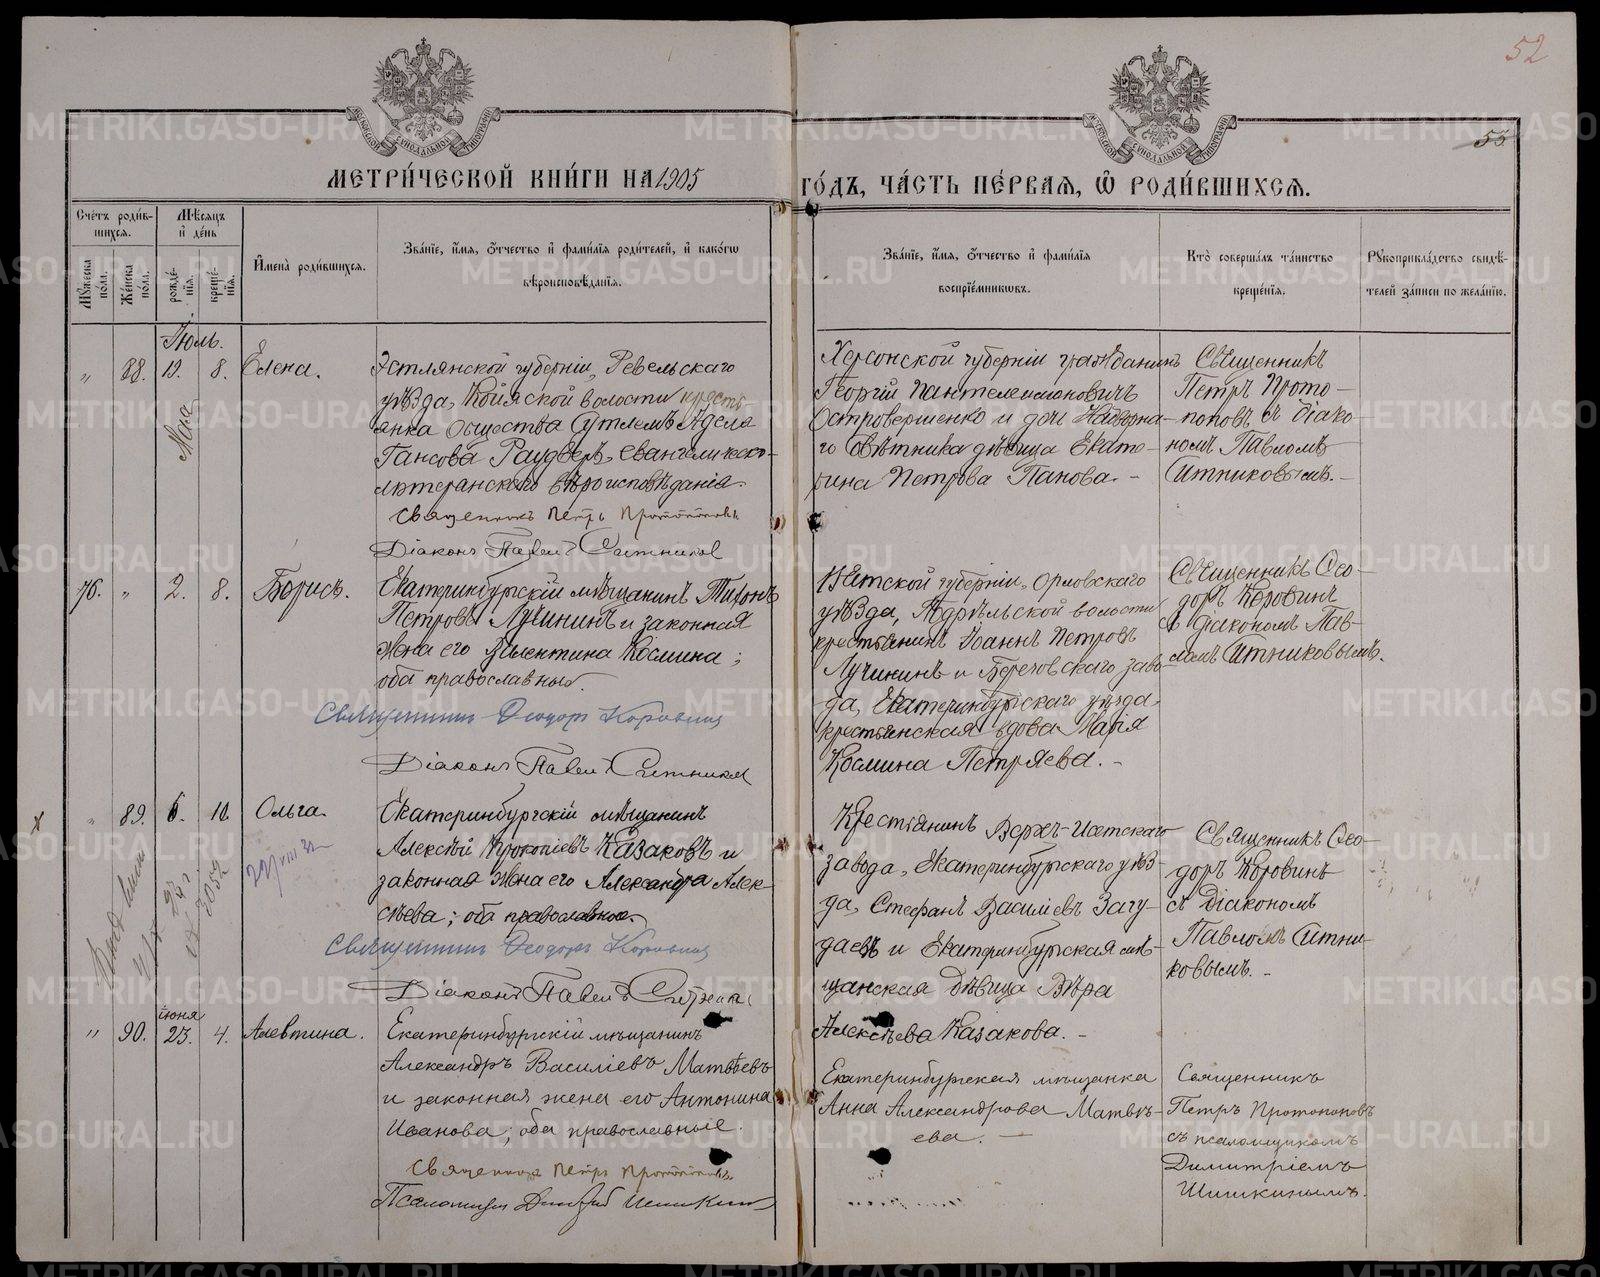 52
53
МЕТРИ́ЧЕСКОЙ КНИ́ГИ НА 1905 ГО́ДЪ, ЧА́СТЬ ПЕ́РВАЯ, Ѡ РОДИ́ВШИХСЯ.
Сче́тъ роди́в-
шихся.
Мѣ́сяцъ
и҆ де́нь
Мꙋ́жеска по́ла.
Же́нска по́ла.
рожде́-
нїя.
креще́-
нїя.
И҆мена̀ роди́вшихся.
Зва́нїе, и҆́мя, ѻ҆́тчество и҆ фами́лїя роди́телей, и҆ како́гѡ
вѣроисповѣ́данїя.
Зва́нїе, и҆́мя, ѻ҆́тчество и҆ фами́лїя
воспрїе́мникѡвъ.
Кто̀ соверша́лъ та́инство
креще́нїя.
Рꙋкоприкла́дство свидѣ́-
телей за́писи по жела́нїю.
Іюль.
" 88. 8. Елена.
Мая
Эстлянской губерніи, Ревельскаго
уѣзда, Койяской волости кресть
янка общества Сутлемъ Адела
Гансова Раудверъ, евангелическо-
лютеранскаго вѣроисповѣданія.
Священникъ Петръ Протопоповъ
Діаконъ Павелъ Ситниковъ
Херсонской губерніи гражданинъ
Георгій Пантелеимоновичъ
Островершенко и дочь Надворна-
го Совѣтника дѣвица Екате-
рина Петрова Панова. -
Священникъ
Петръ Прото-
поповъ съ діако-
номъ Павломъ
Ситниковымъ. -
76. " 2. 8. Борисъ.
Екатеринбургскій мѣщанинъ Тихонъ
Петровъ Лучининъ и законная
жена его Валентина Космина;
оба православные.
Священникъ Ѳеодоръ Коровинъ
Діаконъ Павелъ Ситниковъ
Вятской губерніи, Орловскаго
уѣзда, волости
крестьянинъ Іоаннъ Петровъ
Лучининъ и Березовскаго заво-
да, Екатеринбургскаго уѣзда,
крестьянская вдова Марія
Космина Петряева. -
Священникъ Ѳео-
доръ Коровинъ
съ діакономъ Пав-
ломъ Ситниковымъ.
" 89. 6. 10. Ольга.
Екатеринбургскій мѣщанинъ
Алексѣй Прокопіевъ Казаковъ и
законная жена его Александра Алек-
сѣева; оба православные.
Священникъ Ѳеодоръ Коровинъ
Діаконъ Павелъ Ситниковъ
Крестьянинъ Верхъ-Исетскаго
завода, Екатеринбургскаго уѣз-
да, Стефанъ Василіевъ Загу-
даевъ и Екатеринбургская мѣ-
щанская дѣвица Вѣра
Алексѣева Казакова. -
Священникъ Ѳео-
доръ Коровинъ
съ діакономъ
Павломъ Ситни-
ковымъ. -
іюня
" 90. 23. 4. Алевтина.
Екатеринбургскій мѣщанинъ
Александръ Василіевъ Матвѣевъ
и законная жена его Антонина
Иванова; оба православные.
Священникъ Петръ Протопоповъ
Псаломщикъ Димитрій Шишкинъ
Екатеринбургская мѣщанка
Анна Александрова Матвѣ-
ева. -
Священникъ
Петръ Протопоповъ
съ псаломщикомъ
Димитріемъ
Шишкинымъ.
METRIKI.GASO-URAL.RU